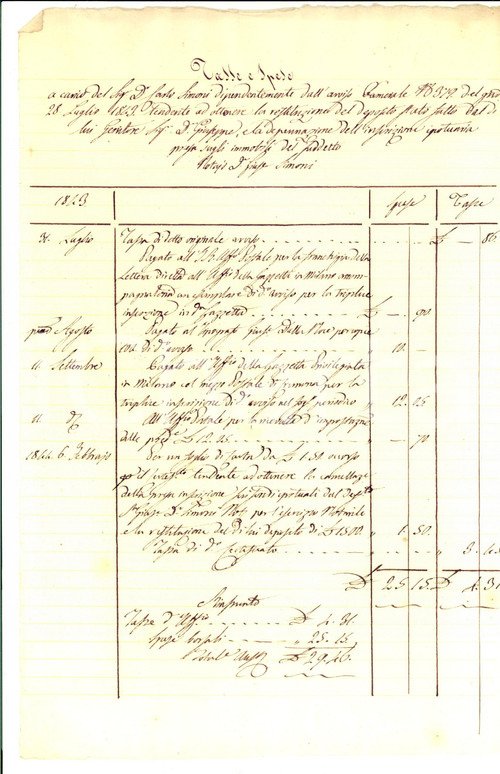 Tasse e Spese
a carico del Sig. Dr. Carlo Simoni dipendentemente dall'avviso Camerale N. 379 del giorno
28 Luglio 1843 tendente ad ottenere la restituzione del deposito stato fatto dal di
lui Genitore Sig. Dr. Giuseppe, e la depennazione dell'inscrizione ipotecaria
presa sugli immobili del suddetto
Notajo Dr. Giuse. Simoni
1843 Spese Tasse
31. Luglio Tassa di detto originale avviso £ — 86
Pagato all'I. R. Uffo. Postale per la franchigia della
Lettera diretta all'Uffo. della Gazzetta in Milano
un esemplare di do. avviso per la triplice
inserzione in da. Gazzetta £ — . 90
Agosto Pagato al Giuse. per
di do. avviso " 10. —
11 Settembre Pagato all'Uffo. della Gazzetta Privilegiata
in Milano col mezzo Postale di Cremona per la
triplice inserzione di do. avviso nel periodico " 12. 25
11. do. All'Uffo. Postale per la
delle £ 12. 25 " — . 70
1844. 6 Febbrajo Per un foglio di carta da £ 1.50 occorso
pel tendente ad ottenere la cancellazne.
della presa inscrizione sui fondi ipotecati dal
Giuse. Simoni Not. per l'esercizio Notarile
e la restituzione del di lui deposito di £ 1500. " 1. 50
Tassa di do. " 3. 45
£ 25 15. £ 4. 31
Riassunto
Tasse d'Uffo. £ 4. 31.
Spese " 25. 15
£ 29. 46